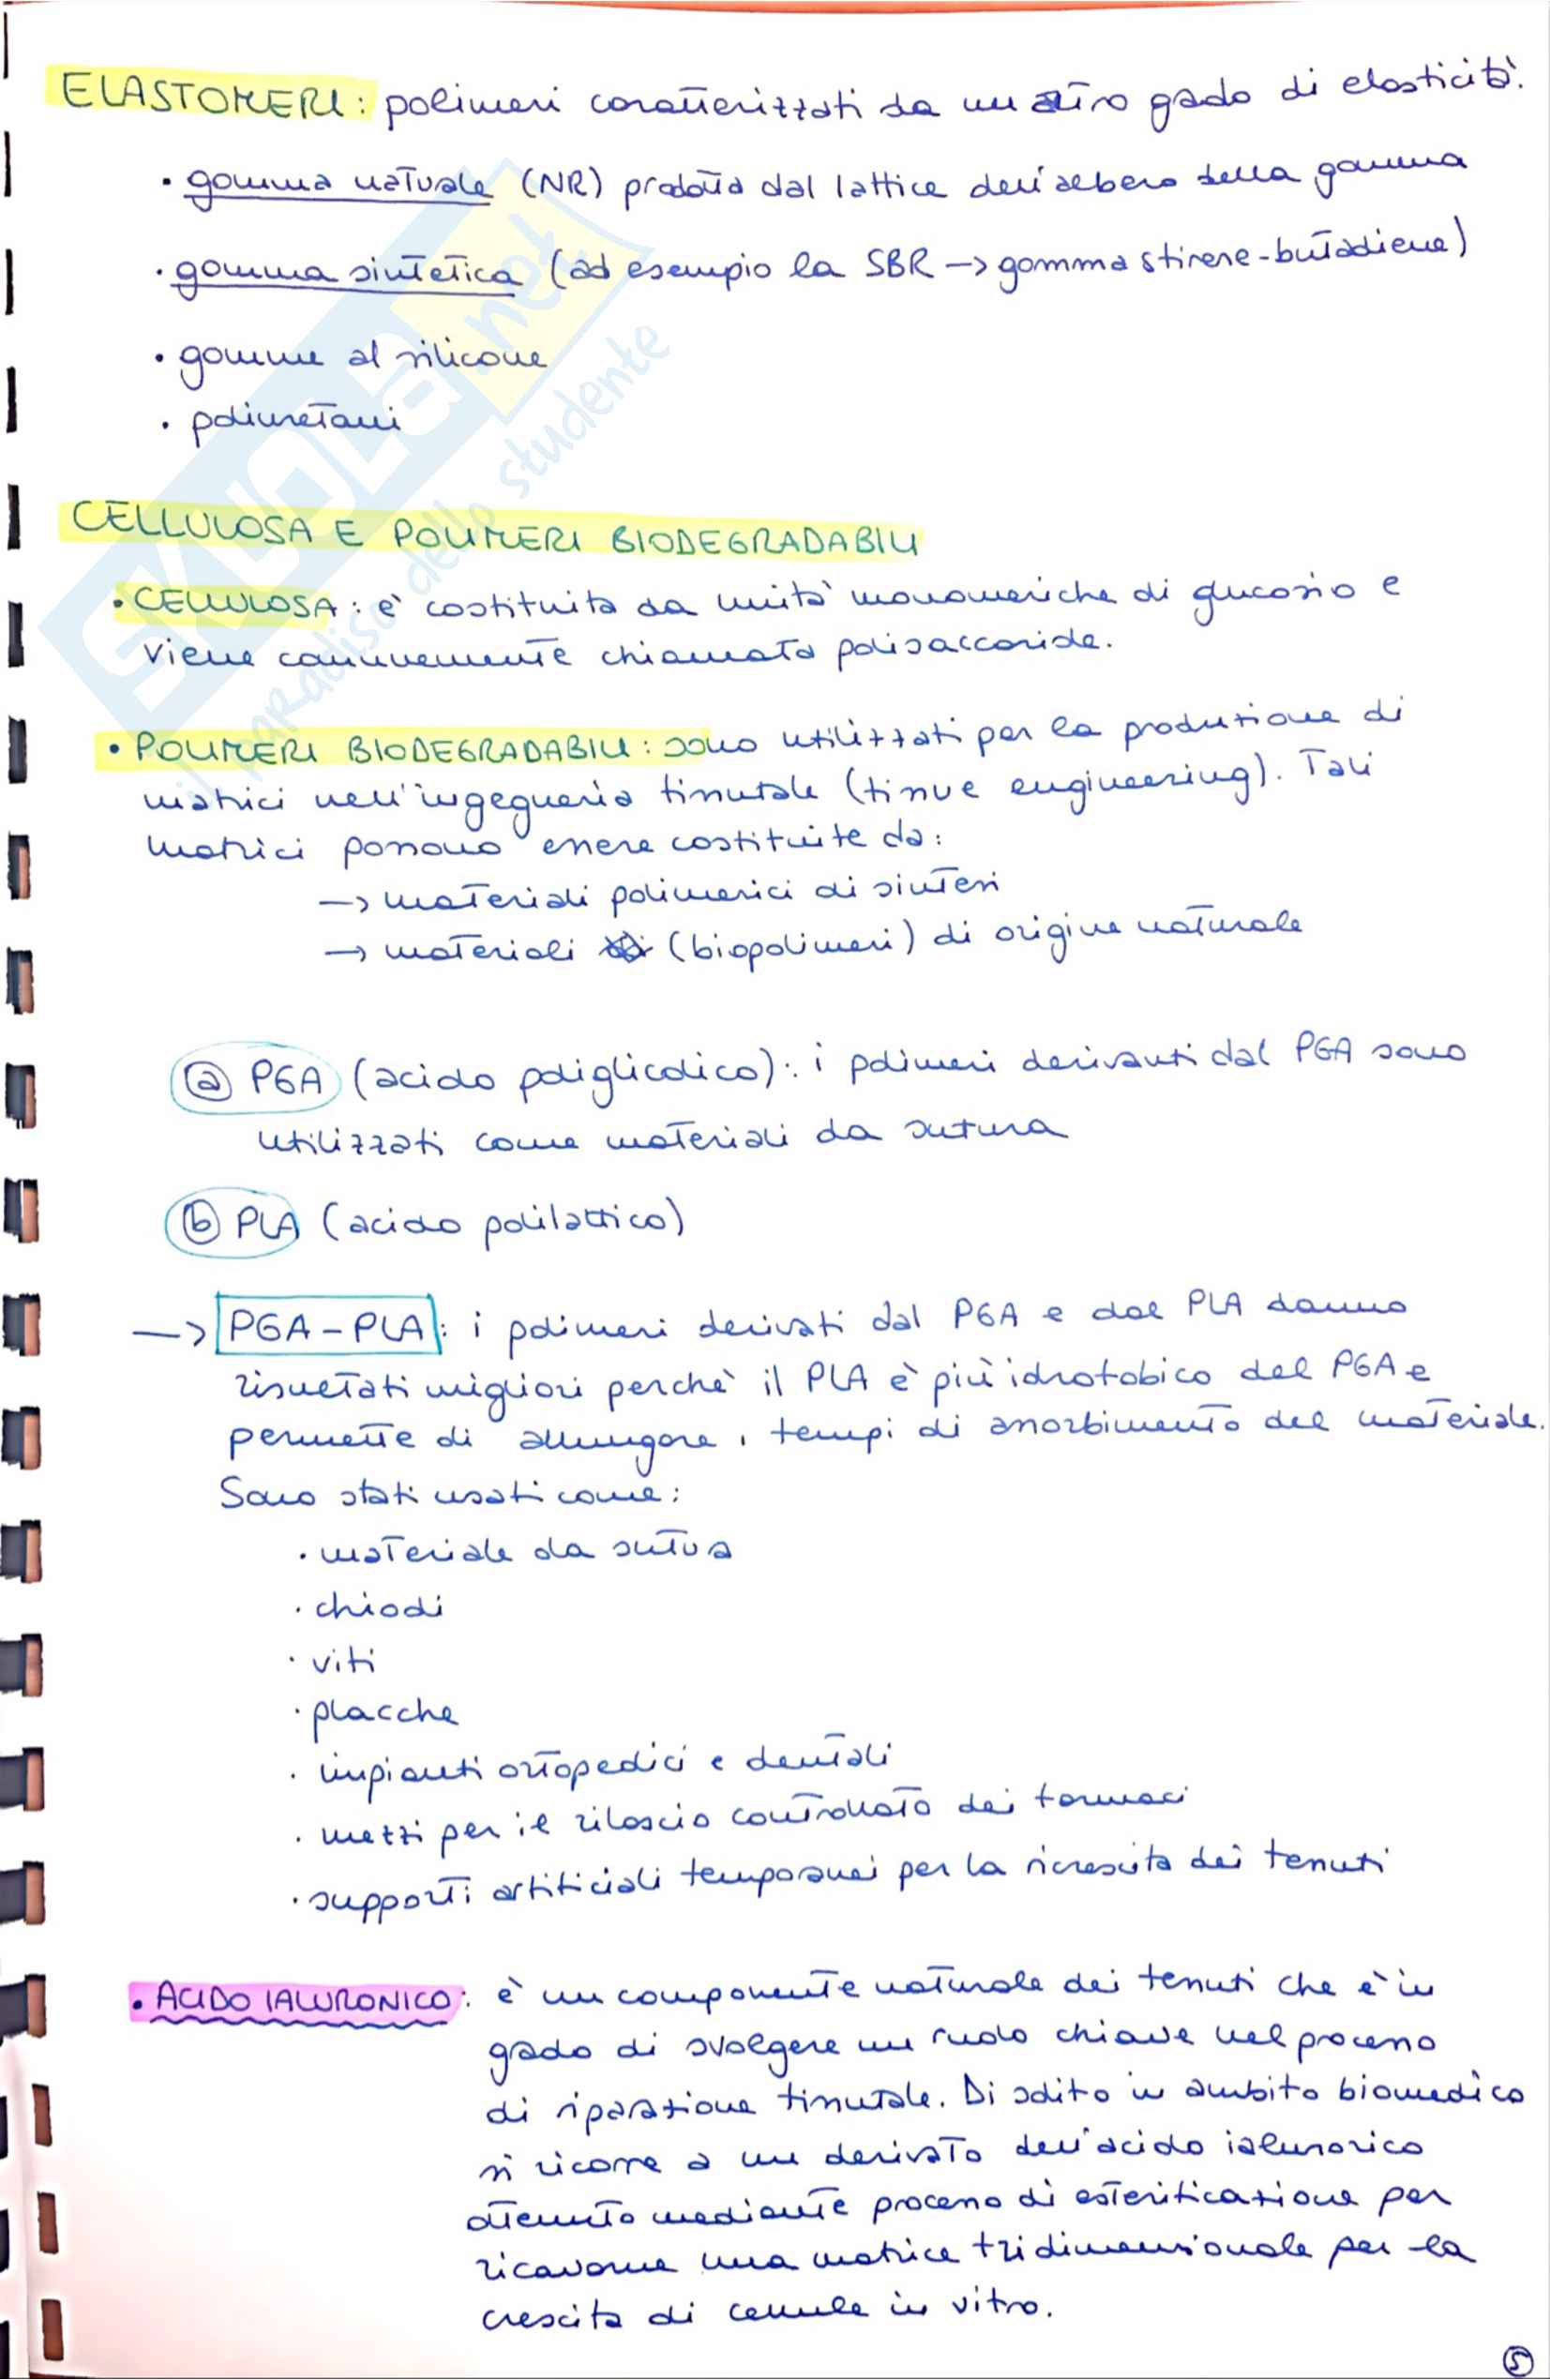 ELASTOMERI: polimeri caratterizzati da un alto grado di elasticità.
• gomma naturale (NR) prodotta dal lattice dell'albero della gomma
• gomma sintetica (ad esempio la SBR -> gomma stirene-butadiene)
• gomme al silicone
• poliuretani
CELLULOSA E POLIMERI BIODEGRADABILI
• CELLULOSA: è costituita da unità monomeriche di glucosio e
viene comunemente chiamata polisaccaride.
• POLIMERI BIODEGRADABILI: sono utilizzati per la produzione di
matrici nell'ingegneria tissutale (tissue engineering). Tali
matrici possono essere costituite da:
-> materiali polimerici di sintesi
-> materiali (biopolimeri) di origine naturale
ⓐ PGA (acido poliglicolico): i polimeri derivanti dal PGA sono
utilizzati come materiali da sutura
ⓑ PLA (acido polilattico)
-> PGA-PLA: i polimeri derivati dal PGA e dal PLA danno
risultati migliori perchè il PLA è più idrofobico del PGA e
permette di allungare i tempi di assorbimento del materiale.
Sono stati usati come:
• materiale da sutura
• chiodi
• viti
• placche
• impianti ortopedici e dentali
• mezzi per il rilascio controllato dei farmaci
• supporti artificiali temporanei per la ricrescita dei tessuti
• ACIDO IALURONICO: è un componente naturale dei tessuti che è in
grado di svolgere un ruolo chiave nel processo
di riparazione tissutale. Di solito in ambito biomedico
si ricorre a un derivato dell'acido ialuronico
ottenuto mediante processo di esterificazione per
ricavarne una matrice tridimensionale per la
crescita di cellule in vitro.
5
SKUOLA.net
il paradiso dello studente